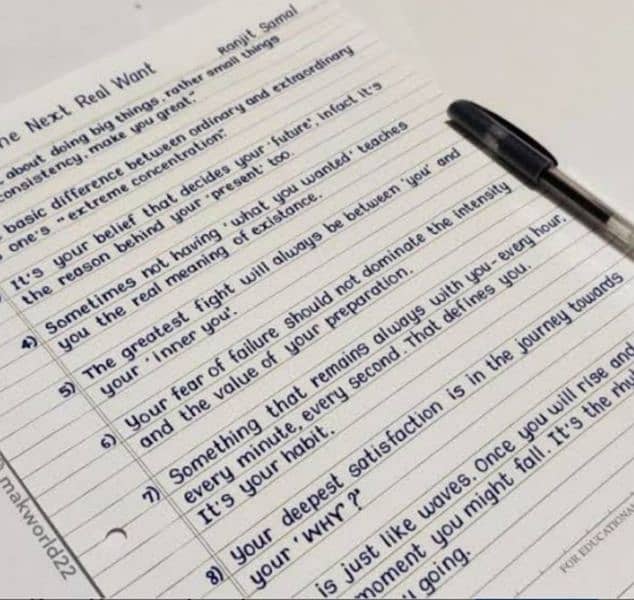 Ranjit Samal
Next Real Want
about doing big things, rather small things
consistency, make you great."
basic difference between ordinary and extraordinary
one's "extreme concentration".
It's your belief that decides your 'future', Infact it's
the reason behind your 'present' too.
4) Sometimes not having 'what you wanted' teaches
you the real meaning of existance.
5) The greatest fight will always be between 'you' and
your 'inner you'.
6) Your fear of failure should not dominate the intensity
and the value of your preparation.
7) Something that remains always with you - every hour,
every minute, every second. That defines you.
It's your habit.
8) Your deepest satisfaction is in the journey towards
your 'WHY'?'
is just like waves. Once you will rise and
moment you might fall. It's the
going.
makworld22
FOR EDUCATIONA